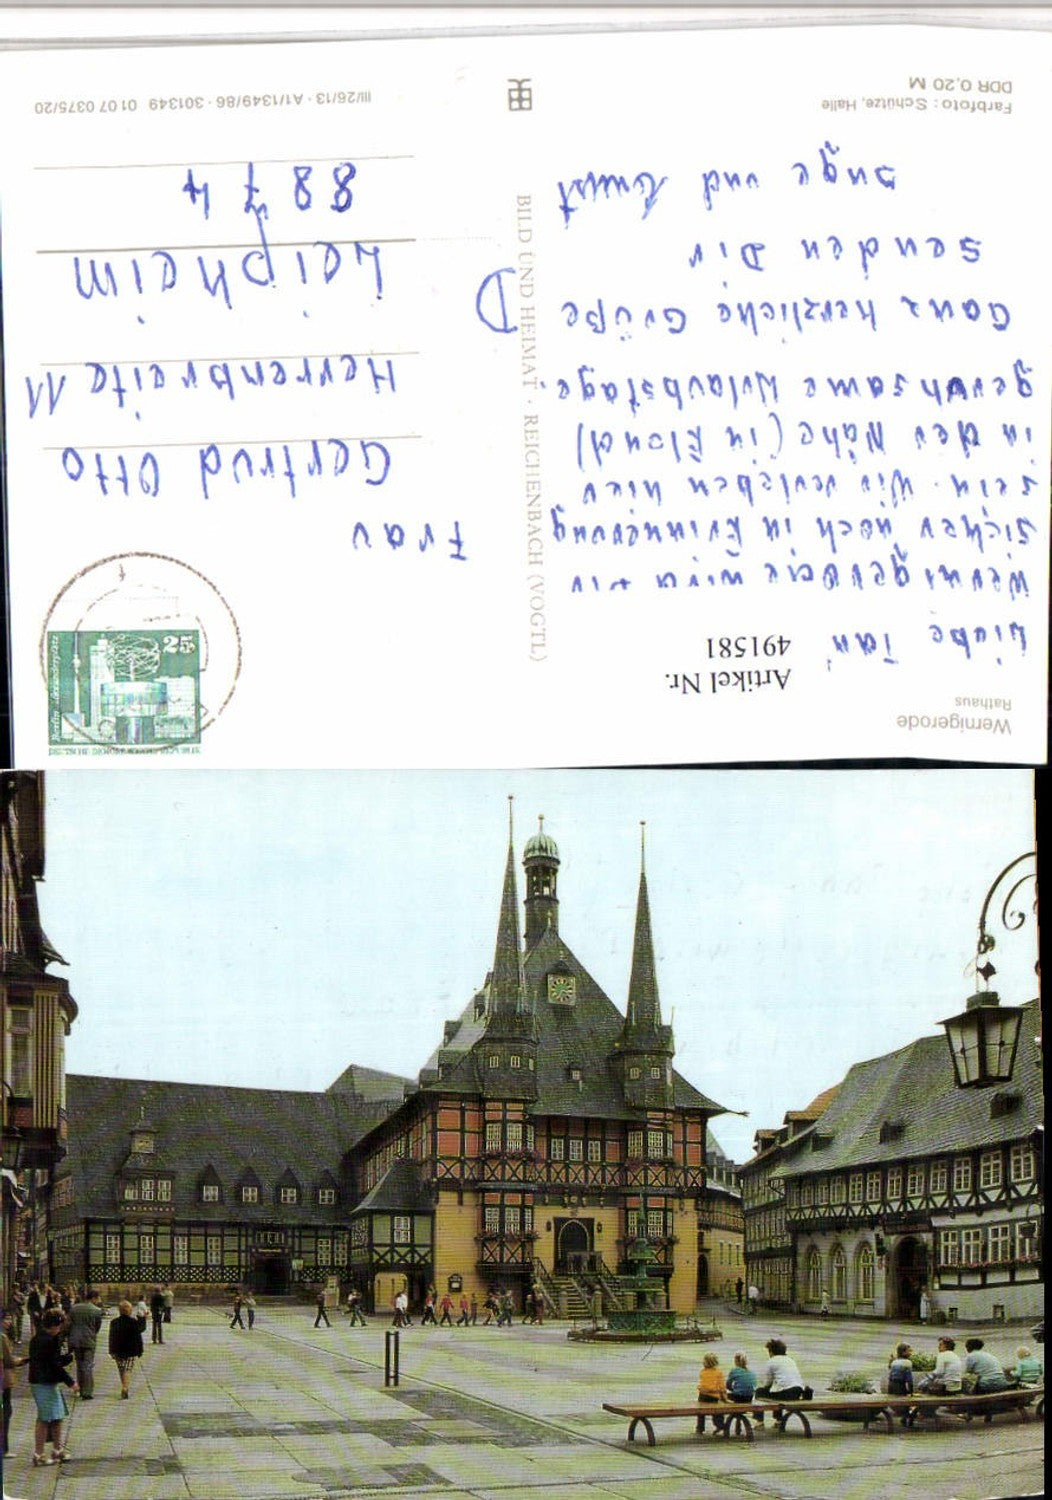 Wernigerode
Rathaus
Artikel Nr.
491581
Liebe Tan
Wernigerode wird dir
sicher noch in Erinnerung
sein. Wir verleben hier
in der Nähe (in Elend)
geruhsame Urlaubstage.
Ganz herzliche Grüße
senden Dir
Inge und Ernst
Farbfoto: Schütze, Halle
DDR 0,20 M
BILD UND HEIMAT · REICHENBACH (VOGTL)
25
Frau
Gertrud Otto
Herrenbreite 11
D
Leipheim
8874
III/26/13 · A1/1349/86 · 301349 01 07 0375/20